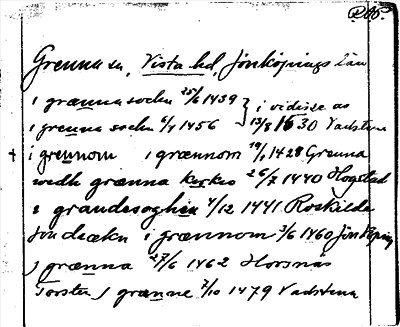 Grenna sn, Vista hd, Jönköpings län
i grænna sochn 25/6 1439 } i vidisse av
i grenna sochn 6/7 1456 13/8 1530 Vadstena
i grennom i grænnom 19/1 1428 Grenna
wedh grænna kyrkio 26/7 1440 Hogstad
i grandesoghen 4/12 1441 Roskilde
i grænnom 3/6 1460 Jönköping
j grænna 27/6 1462 Horsnäs
Torsten j grænne 7/10 1479 Vadstena